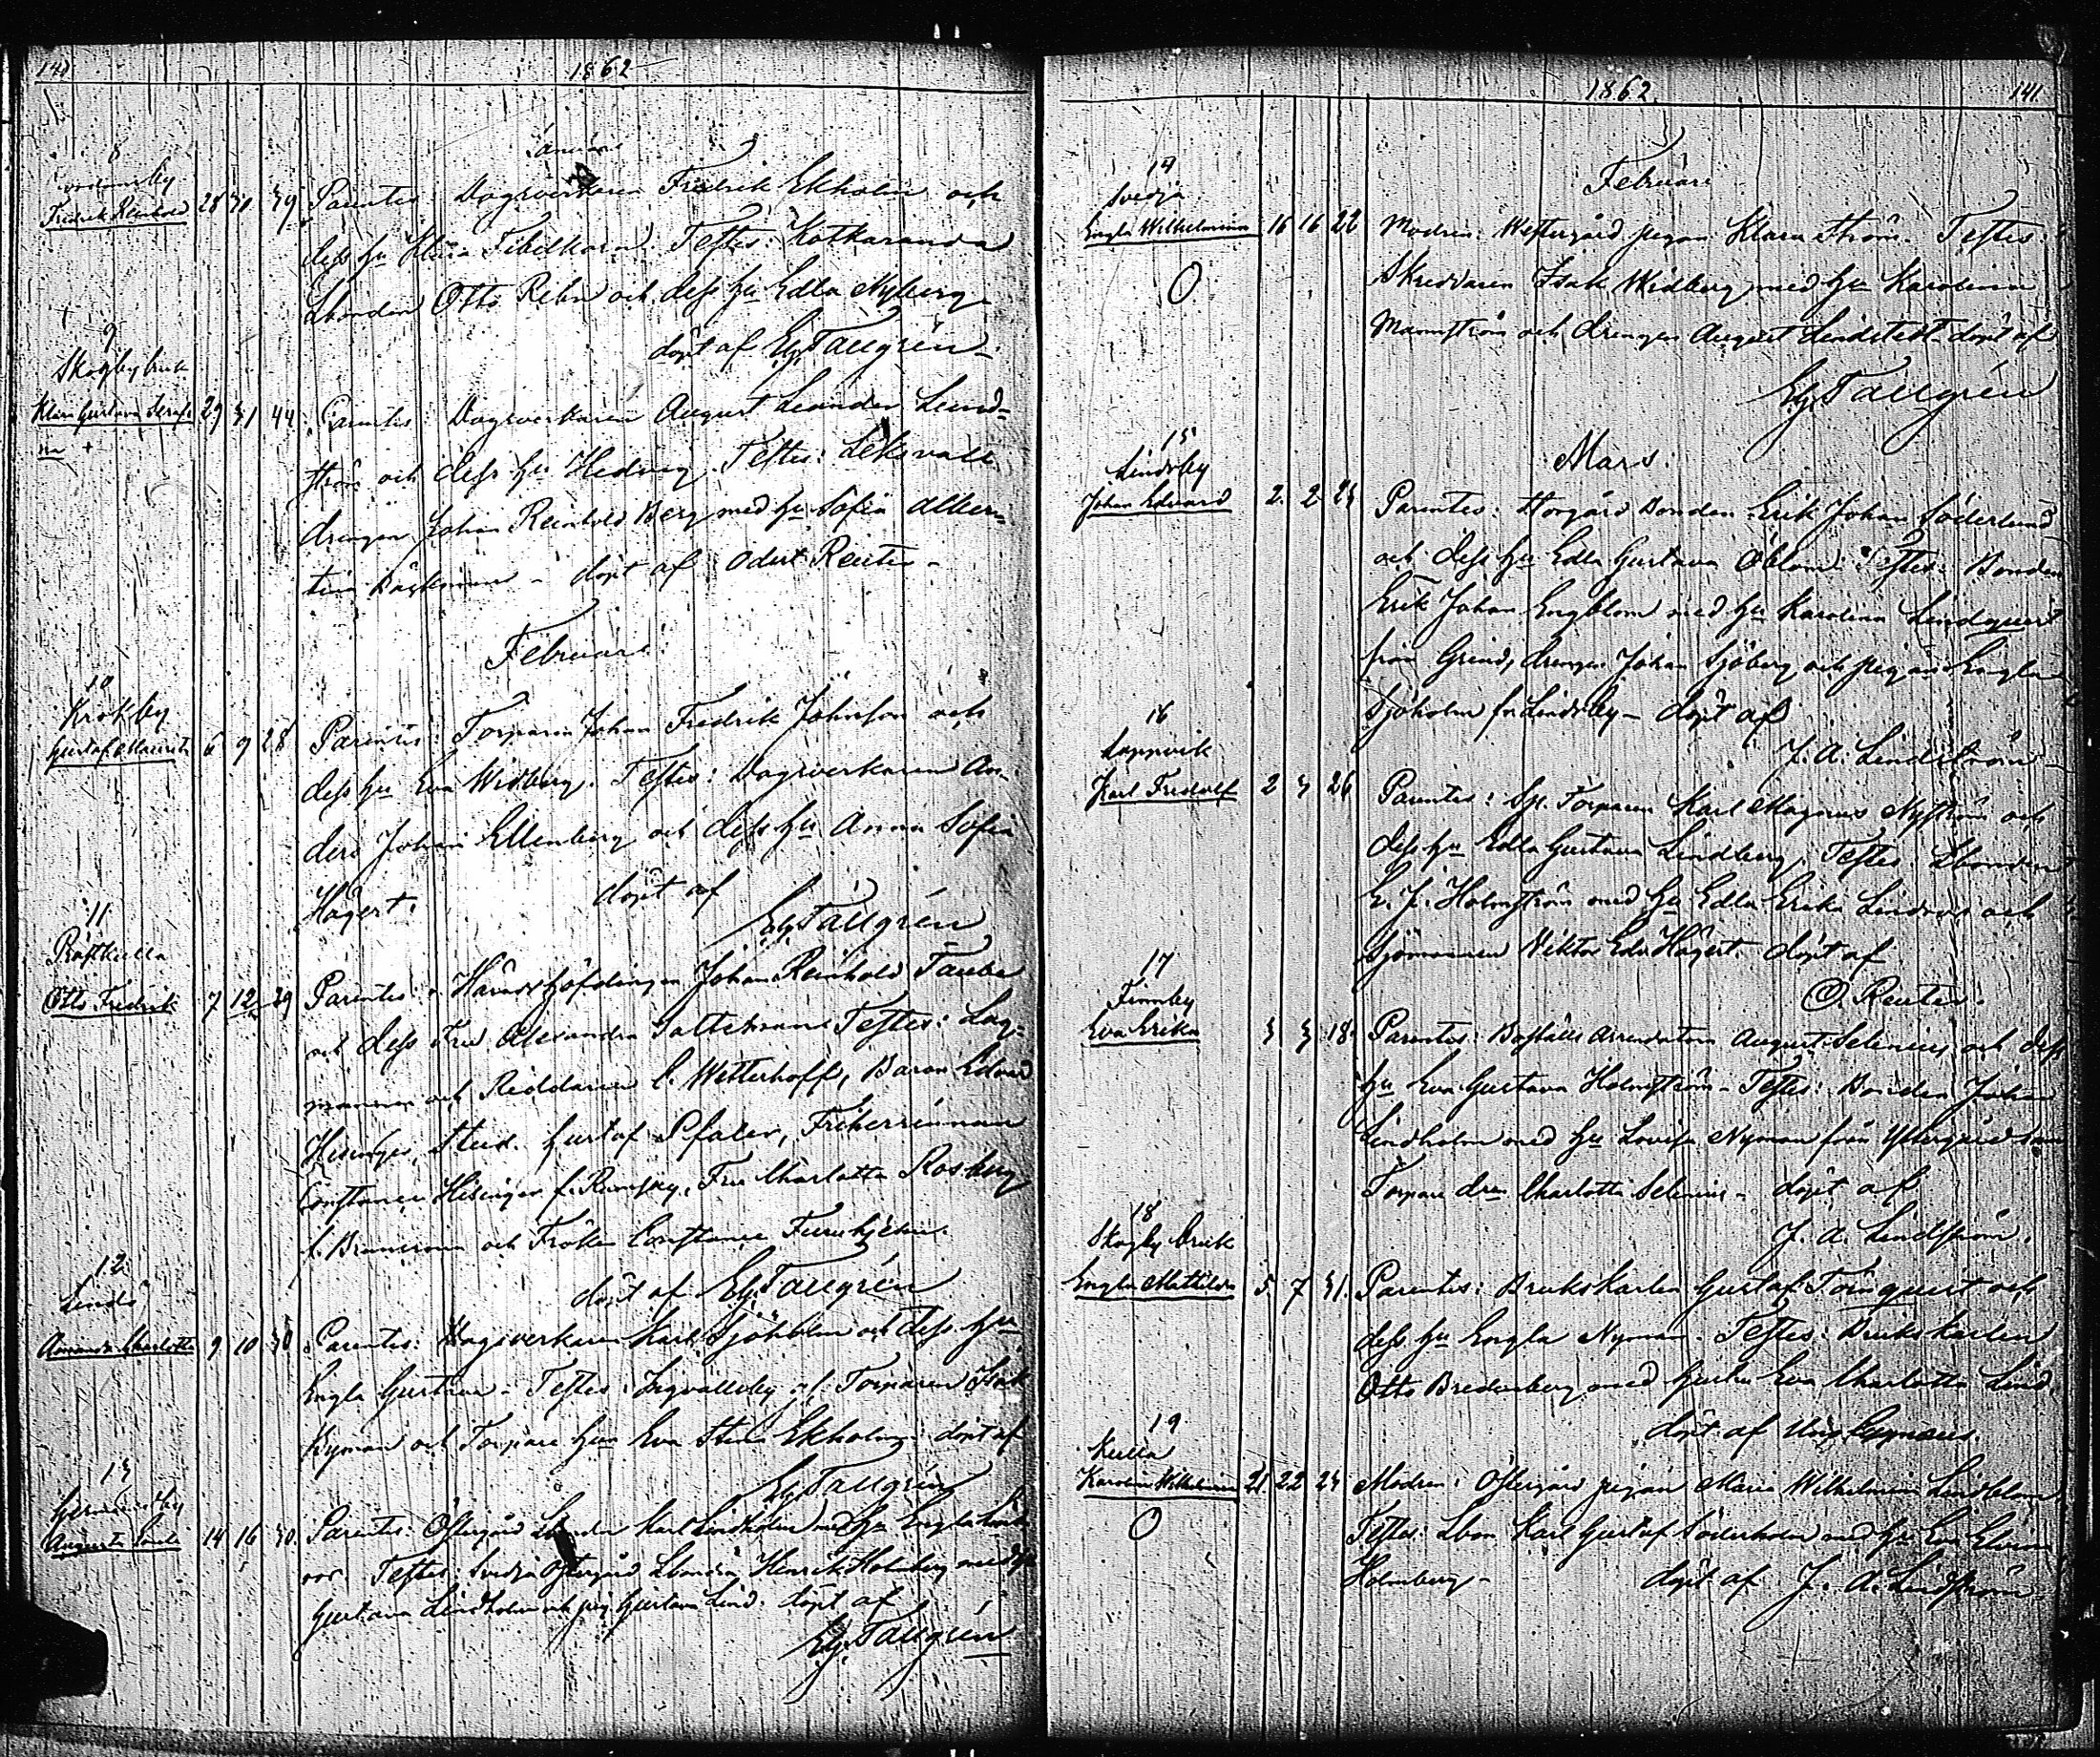 140 1862
Januari
8
Fredrik Reinhold 28 30 39 Parentes: Dagsverkaren Fredrik Ekholm och
dess hu Klara Fibelkorn. Testes: Kotkaranda
Lbonden Otto Rehn och dess hu Edla Nyberg.
döpt af Eg. Tallgrén
9
Skogby bruk
Klara Gustava Serafi 29 31 44 Parentes: Dagsverkaren August Leander Lind=
na +
ström och dess hu Hedvig. Testes: Leksvall
drengen Johan Reinhold Berg med hu Sofia Alber=
tina döpt af Odert Reuter
Februari
10
Krokby
Gustaf Mauritz 6 9 28 Parentes: Torparen Johan Fredrik Johnson och
dess hu Eva Widberg. Testes: Dagsverkaren An=
ders Johan Ellenberg och dess hu Anna Sofia
Hägert. döpt af
Eg. Tallgrén
11
Prästkulla
Otto Fredrik 7 12 29 Parentes: Häradshöfdingen Johan Reinhold Taube
och dess Fru Alexandra Testes: Lag=
mannen och Riddaren C. Wetterhoff, Baron Edvard
Hisinger, Stud. Gustaf Pfaler, Friherrinnan
Constance Hisinger f. Ramsay, Fru Charlotta Rosberg
f. och Fröken Constance Furuhjelm.
döpt af Eg. Tallgrén
12
Lindö
Amanda Charlotta 9 10 30 Parentes: Dagsverkaren Karl Sjöholm och dess hu
Engla Gustava. Testes: Ingvallsby Torparen Isak
Nyman och Torpare hu Eva Stina Ekholm. döpt af
Eg. Tallgrén
13
Germundby
14 16 30. Parentes: Östergård Lbonden Karl Lindholm med hu Engla
Testes: Svedja Östergård Lbonden Henrik Holmberg med hu
Gustava Lindholm och pig. Gustava Lind. döpt af
Eg. Tallgrén
1862. 141
Februari
14
Svedja
Engla Wilhelmina 15 16 22 Modren: Westergård pigan Klara Ström. Testes:
O
Skreddaren Isak Widberg med hu Karolina
Malmström och drengen August Lindstedt. döpt af
Eg. Tallgrén
Mars.
15
Lindsby
Johan Edvard 2. 2 24 Parentes: Norrgård Bonden Erik Johan Söderlund
och dess hu Edla Gustava Öblom. Testes: Bonden
Erik Johan Engblom med hu Karolina Lindqvist
från Grind, drengen Johan Sjöberg och pigan Engla
Sjöholm fr Lindsby – döpt af
J. A. Lindström
16
Lappvik
Karl Fredolf 2 3 26 Parentes: Torparen Karl Magnus Nyström och
dess hu Edla Gustava Lindberg, Testes: Lbonden
E. J. Holmström med hu Edla Erika Lindroos och
Sjömannen Viktor Edv. Hägert. döpt af
O. Reuter.
17
Finnby
Eva Erika 3 3 18. Parentes: Boställs Arrendatorn August Selenius och dess
hu Eva Gustava Holmström – Testes: Bonden Johan
Lindholm med hu Lovisa Nyman från Yttergård samt
Torpare Charlotta Selenius – döpt af
J. A. Lindström.
18
Skogby bruk
Engla Mathilda 5 7 31. Parentes: Brukskarlen Gustaf Törnqvist och
dess hu Engla Nyman. Testes: Brukskarlen
Otto Bredenberg med hustru Eva Charlotta Lind.
döpt af
19
Kulla
Karolina Wilhelmina 21 22 24 Modren: Östergård pigan Maria Wilhelmina Lindblom
O
Testes: Lbon Karl Gustaf Söderholm med hu Eva
Holmberg – döpt af J. A. Lindström